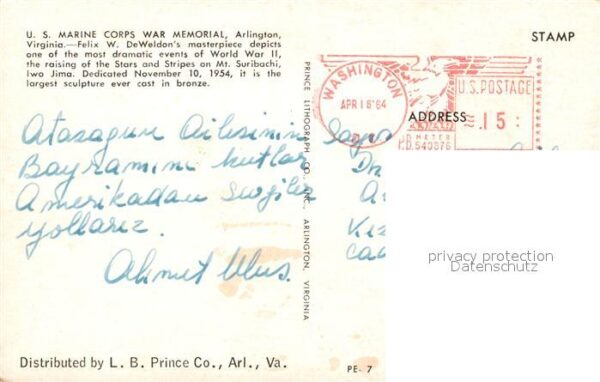 U. S. MARINE CORPS WAR MEMORIAL, Arlington,
Virginia.—Felix W. DeWeldon's masterpiece depicts
one of the most dramatic events of World War II,
the raising of the Stars and Stripes on Mt. Suribachi,
Iwo Jima. Dedicated November 10, 1954, it is the
largest sculpture ever cast in bronze.
Atasagun Ailesinin
Bayramını kutlar
Amerikadan sevgiler
yollarız.
Ahmet Ulus.
Distributed by L. B. Prince Co., Arl., Va.
PRINCE LITHOGRAPH CO., INC., ARLINGTON, VIRGINIA
STAMP
WASHINGTON
APR 16'64
D.C.
U.S. POSTAGE
.15
METER
540376
ADDRESS
privacy protection
Datenschutz
PE-7